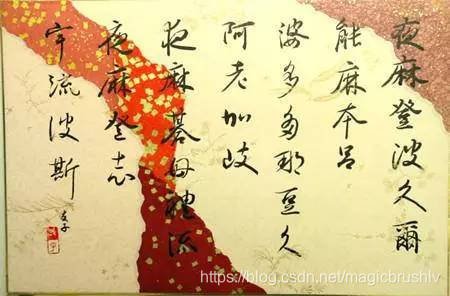 夜麻登波久爾
能麻本呂
婆多多那豆久
阿袁加岐
夜麻碁母禮流
夜麻登志
宇流波斯
https://blog.csdn.net/magicbrushlv